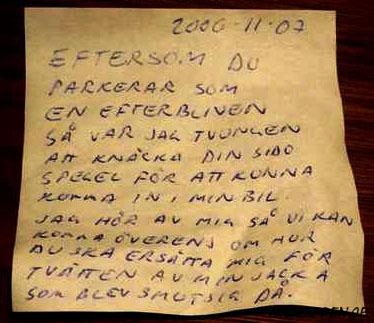 2006-11-07
EFTERSOM DU
PARKERAR SOM
EN EFTERBLIVEN
SÅ VAR JAG TVUNGEN
ATT KNÄCKA DIN SIDO
SPEGEL FÖR ATT KUNNA
KOMMA IN I MIN BIL.
JAG HÖR AV MIG SÅ VI KAN
KOMMA ÖVERENS OM HUR
DU SKA ERSÄTTA MIG FÖR
TVÄTTEN AV MIN JACKA
SOM BLEV SMUTSIG DÅ.